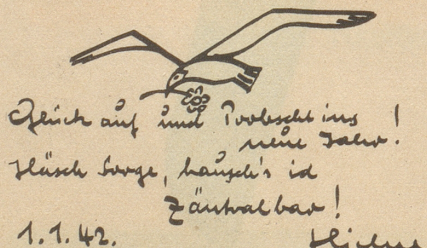 Glück auf und Probscht ins
neue Jahr!
Häsch Sorge, hausch's id
Zäntralbar!
1.1.42.